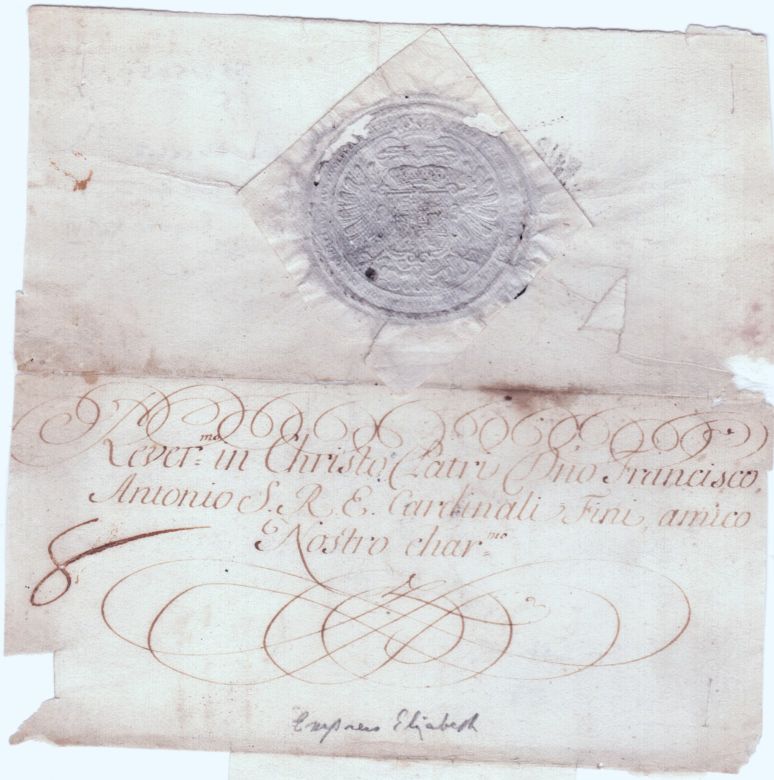 Rever.mo in Christo Patri Dno Francisco
Antonio S. R. E. Cardinali Fini, amico
Nostro char.mo
Empress Elizabeth